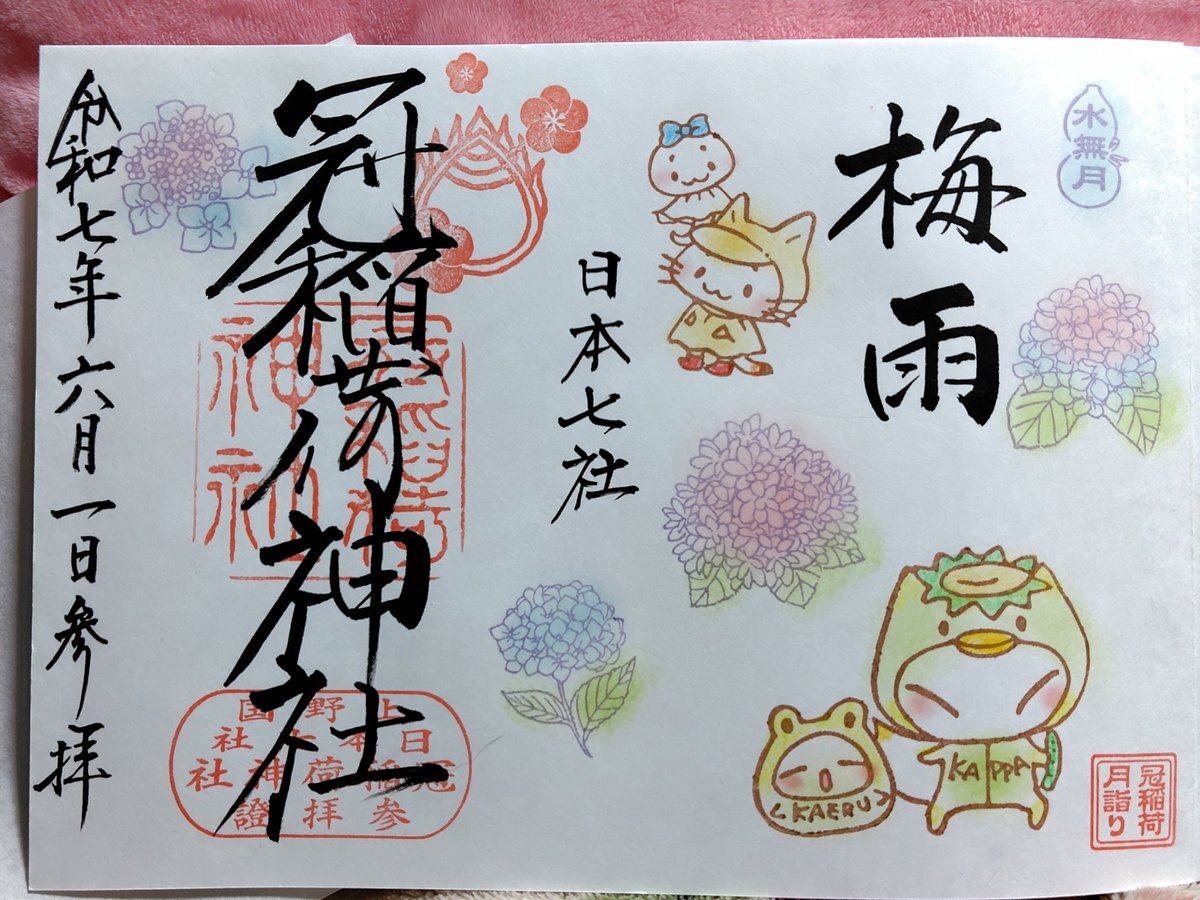 水無月
梅雨
日本七社
冠稲荷神社
令和七年六月一日参拝
冠稲荷
神社
上野国
日本七社
冠稲荷神社
参拝證
KAPPA
<KAERU>
冠稲荷
月詣り